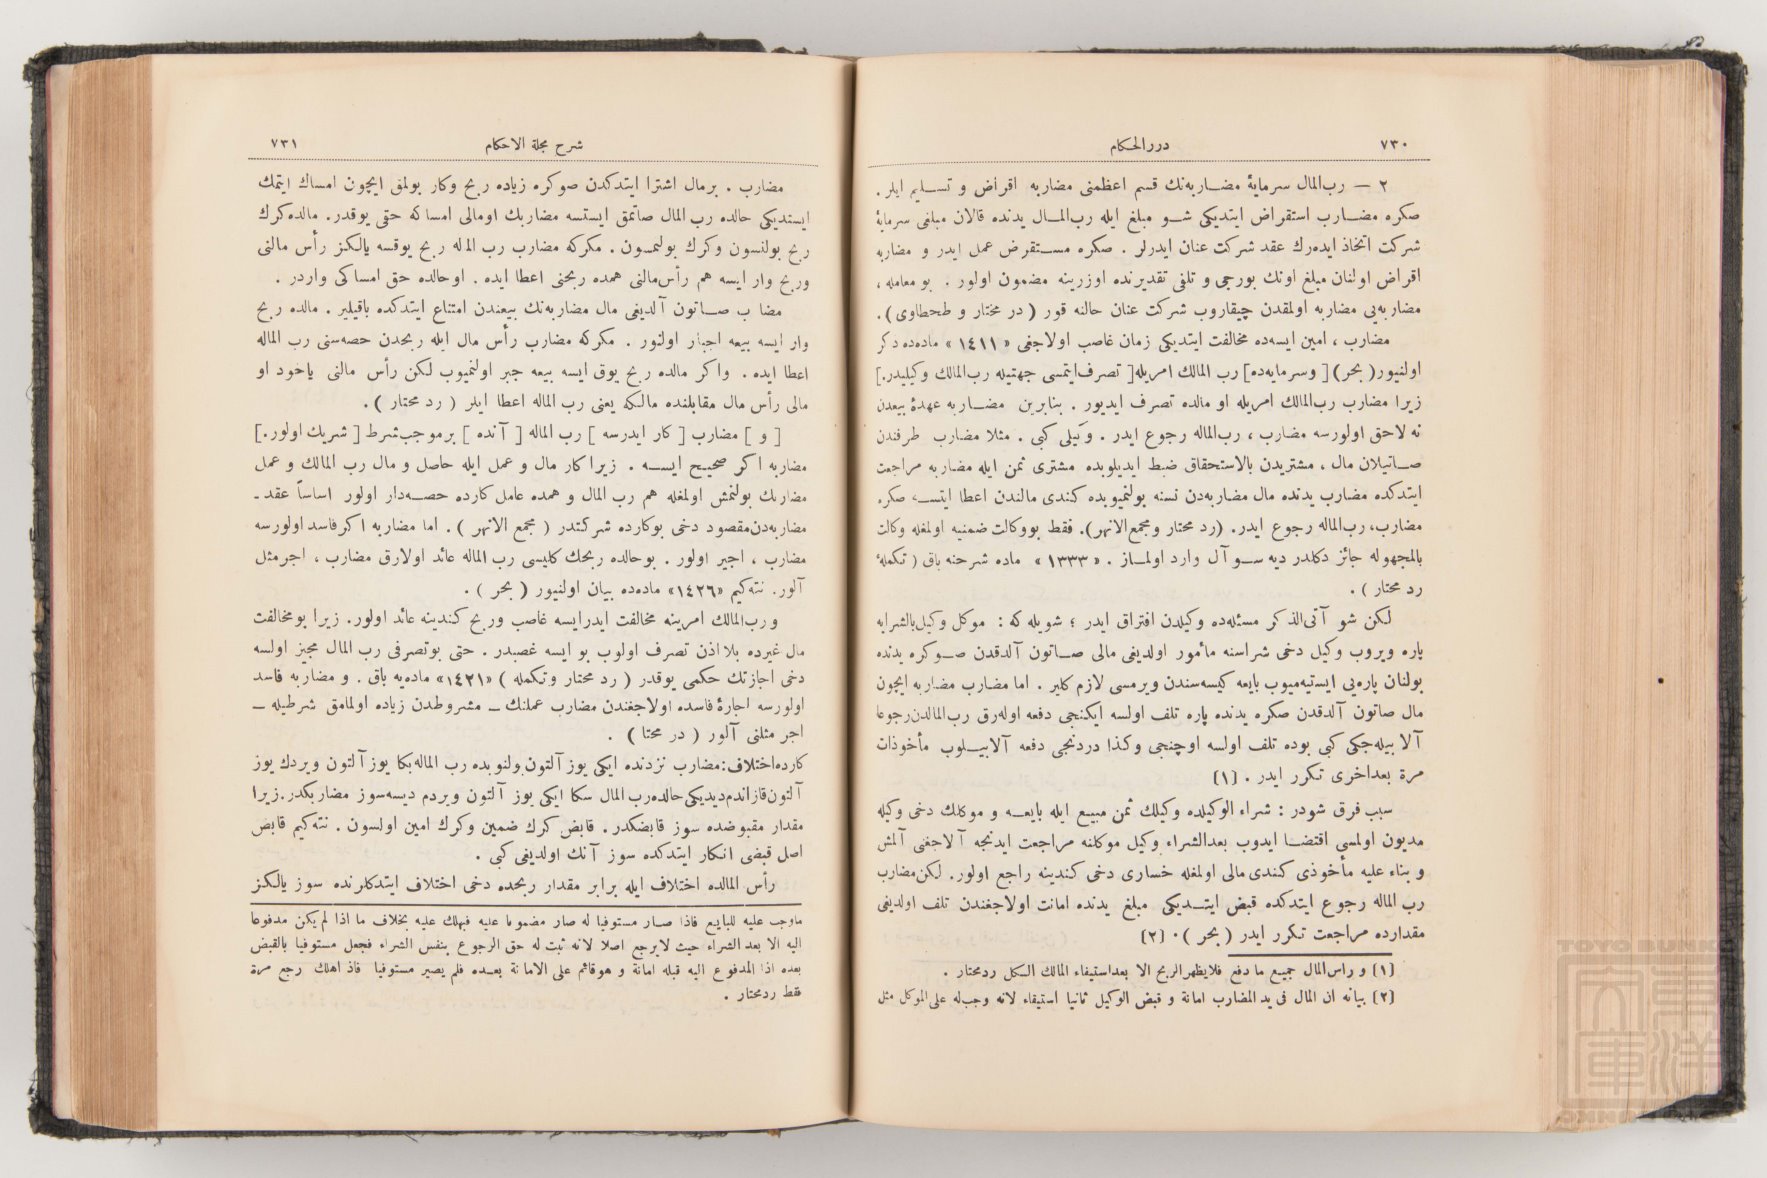 ٧٣٠
دررالحكام
٢ — رب‌المال سرمايهٔ مضـاربه‌نك قسم اعظمنى مضاربه اقراض و تسـليم ايلر .
صكره مضـارب استقراض ايتديكى شـو مبلغ ايله رب‌المـال يدنده قالان مبلغى سرمايهٔ
شركت اتخاذ ايده‌رك عقد شركت عنان ايدرلر . صكره مسـتقرض عمل ايدر و مضاربه
اقراض اولنان مبلغ اونك بورجى و تلفى تقديرنده اوزرينه مضمون اولور . بو معامله ،
مضاربه‌يى مضاربه اولمقدن چيقاروب شركت عنان حالنه قور ( در مختار و طحطاوى ) .
مضارب ، امين ايسه‌ده مخالفت ايتديكى زمان غاصب اولاجغى « ١٤١١ » ماده‌ده ذكر
اولنيور( بحر) [ وسرمايه‌ده] رب المالك امريله[ تصرف‌ايتمسى جهتيله رب‌المالك وكيليدر.]
زيرا مضارب رب‌المالك امريله او مالده تصرف ايديور . بنابرين مضـاربه عهدهٔ بيعدن
نه لاحق اولورسه مضارب ، رب‌الماله رجوع ايدر . وكيلى كبى . مثلا مضارب طرفندن
صـاتيلان مال ، مشتريدن بالاستحقاق ضبط ايديلوبده مشترى ثمن ايله مضاربه مراجعت
ايتدكده مضارب يدنده مال مضاربه‌دن نسنه بولنميوبده كندى مالندن اعطا ايتسـه، صكره
مضارب، رب‌الماله رجوع ايدر. (رد مختار ومجمع‌الانهر). فقط بووكالت ضمنيه اولمغله وكالت
بالمجهوله جائز دكلدر ديه سـوآل وارد اولمـاز . « ١٣٣٣ » ماده شرحنه باق ( تكملهٔ
رد مختار ) .
لكن شو آتى‌الذكر مسئله‌ده وكيلدن افتراق ايدر ؛ شويله كه : موكل وكيل‌بالشرايه
پاره ويروب وكيل دخى شراسنه مأمور اولديغى مالى صـاتون آلدقدن صـوكره يدنده
بولنان پاره‌يى ايستيه‌ميوب بايعه كيسه‌سندن ويرمسى لازم كلير . اما مضارب مضاربه ايچون
مال صاتون آلدقدن صكره يدنده پاره تلف اولسه ايكنجى دفعه اوله‌رق رب‌المالدن‌رجوعا
آلا بيله‌جكى كبى بوده تلف اولسه اوچنجى وكذا دردنجى دفعه آلابيـلوب مأخوذات
مرة بعداخرى تكرر ايدر . (١)
سبب فرق شودر : شراء الوكيلده وكيلك ثمن مبيـع ايله بايعـه و موكلك دخى وكيله
مديون اولمسى اقتضـا ايدوب بعدالشراء وكيل موكلنه مراجعت ايدنجه آلاجغنى آلمش
و بناء عليه مأخوذى كندى مالى اولمغله خسارى دخى كندينه راجع اولور. لكن مضارب
رب الماله رجوع ايتدكده قبض ايتـديكى مبلغ يدنده امانت اولاجغندن تلف اولديغى
مقدارده مراجعت تكرر ايدر ( بحر ) . (٢)
(١) و رأس‌المال جميـع ما دفع فلايظهر‌الربح الا بعداستيفاء المالك الـكل ردمختار .
(٢) بيانه ان المال فى يد المضارب امانة و قبض الوكيل ثانيا استيفاء لانه وجب‌له على الموكل مثل
شرح مجلة الاحكام
٧٣١
مضارب . برمال اشترا ايتدكدن صوكره زياده ربح وكار بولمق ايچون امساك ايتمك
ايستديكى حالده رب المال صاتمق ايستسه مضاربك اومالى امساكه حقى يوقدر. مالده كرك
ربح بولنسون وكرك بولنمسون . مكركه مضارب رب الماله ربح يوقسه يالكز رأس مالنى
وربح وار ايسه هم رأس‌مالنى همده ربحنى اعطا ايده . اوحالده حق امساكى واردر .
مضا ب صـاتون آلديغى مال مضاربه‌نك بيعندن امتناع ايتدكده باقيلير . مالده ربح
وار ايسه بيعه اجبار اولنور . مكركه مضارب رأس مال ايله ربحدن حصه‌سنى رب الماله
اعطا ايده . واكر مالده ربح يوق ايسه بيعه جبر اولنميوب لكن رأس مالنى ياخود او
مالى رأس مال مقابلنده مالكه يعنى رب الماله اعطا ايلر ( رد مختار ) .
[ و ] مضارب [ كار ايدرسه ] رب الماله [ آنده ] برموجب‌شرط [ شريك اولور.]
مضاربه اكر صحيـح ايسـه . زيرا كار مال و عمل ايله حاصل و مال رب المالك و عمل
مضاربك بولنمش اولمغله هم رب المال و همده عامل كارده حصـه‌دار اولور اساساً عقد ـ
مضاربه‌دن‌مقصود دخى بوكارده شركتدر ( مجمع الانهر ) . اما مضاربه اكرفاسد اولورسه
مضارب ، اجير اولور . بوحالده ربحك كليسى رب الماله عائد اولارق مضارب ، اجرمثل
آلور. نته‌كيم «١٤٢٦» ماده‌ده بيان اولنيور ( بحر ) .
ورب‌المالك امرينه مخالفت ايدرايسه غاصب وربح كندينه عائد اولور. زيرا بومخالفت
مال غيرده بلا اذن تصرف اولوب بو ايسه غصبدر . حتى بوتصرفى رب المال مجيز اولسه
دخى اجازتك حكمى يوقدر ( رد مختار وتكمله ) «١٤٢١» ماده‌يه باق . و مضاربه فاسد
اولورسه اجارهٔ فاسده اولاجغندن مضارب عملنك ـ مشروطدن زياده اولمامق شرطيله ـ
اجر مثلنى آلور ( در مختا ) .
كارده‌اختلاف:مضارب نزدنده ايكى يوز آلتون بولنوبده رب الماله بكا يوز آلتون ويردك يوز
آلتون‌قازاندم‌ديديكى‌حالده‌رب‌المال سكا ايكى يوز آلتون ويردم ديسه‌سوز مضاربكدر.زيرا
مقدار مقبوضده سوز قابضكدر. قابض كرك ضمين وكرك امين اولسون . نته‌كيم قابض
اصل قبضى انكار ايتدكده سوز آنك اولديغى كبى .
رأس المالده اختلاف ايله برابر مقدار ربحده دخى اختلاف ايتدكلرنده سوز يالكز
ماوجب عليه للبايـع فاذا صـار مستوفيا له صار مضمونا عليه فيهلك عليه بخلاف ما اذا لم يكن مدفوعا
اليه الا بعد الشراء حيث لايرجع اصلا لانه ثبت له حق الرجوع بنفس الشراء فجعل مستوفيا بالقبض
بعده اذا المدفوع اليه قبله امانة و هو قائم على الامانة بعـده فلم يصير مستوفيا فاذ اهلك رجع مرة
فقط ردمختار .
TOYO BUNKO